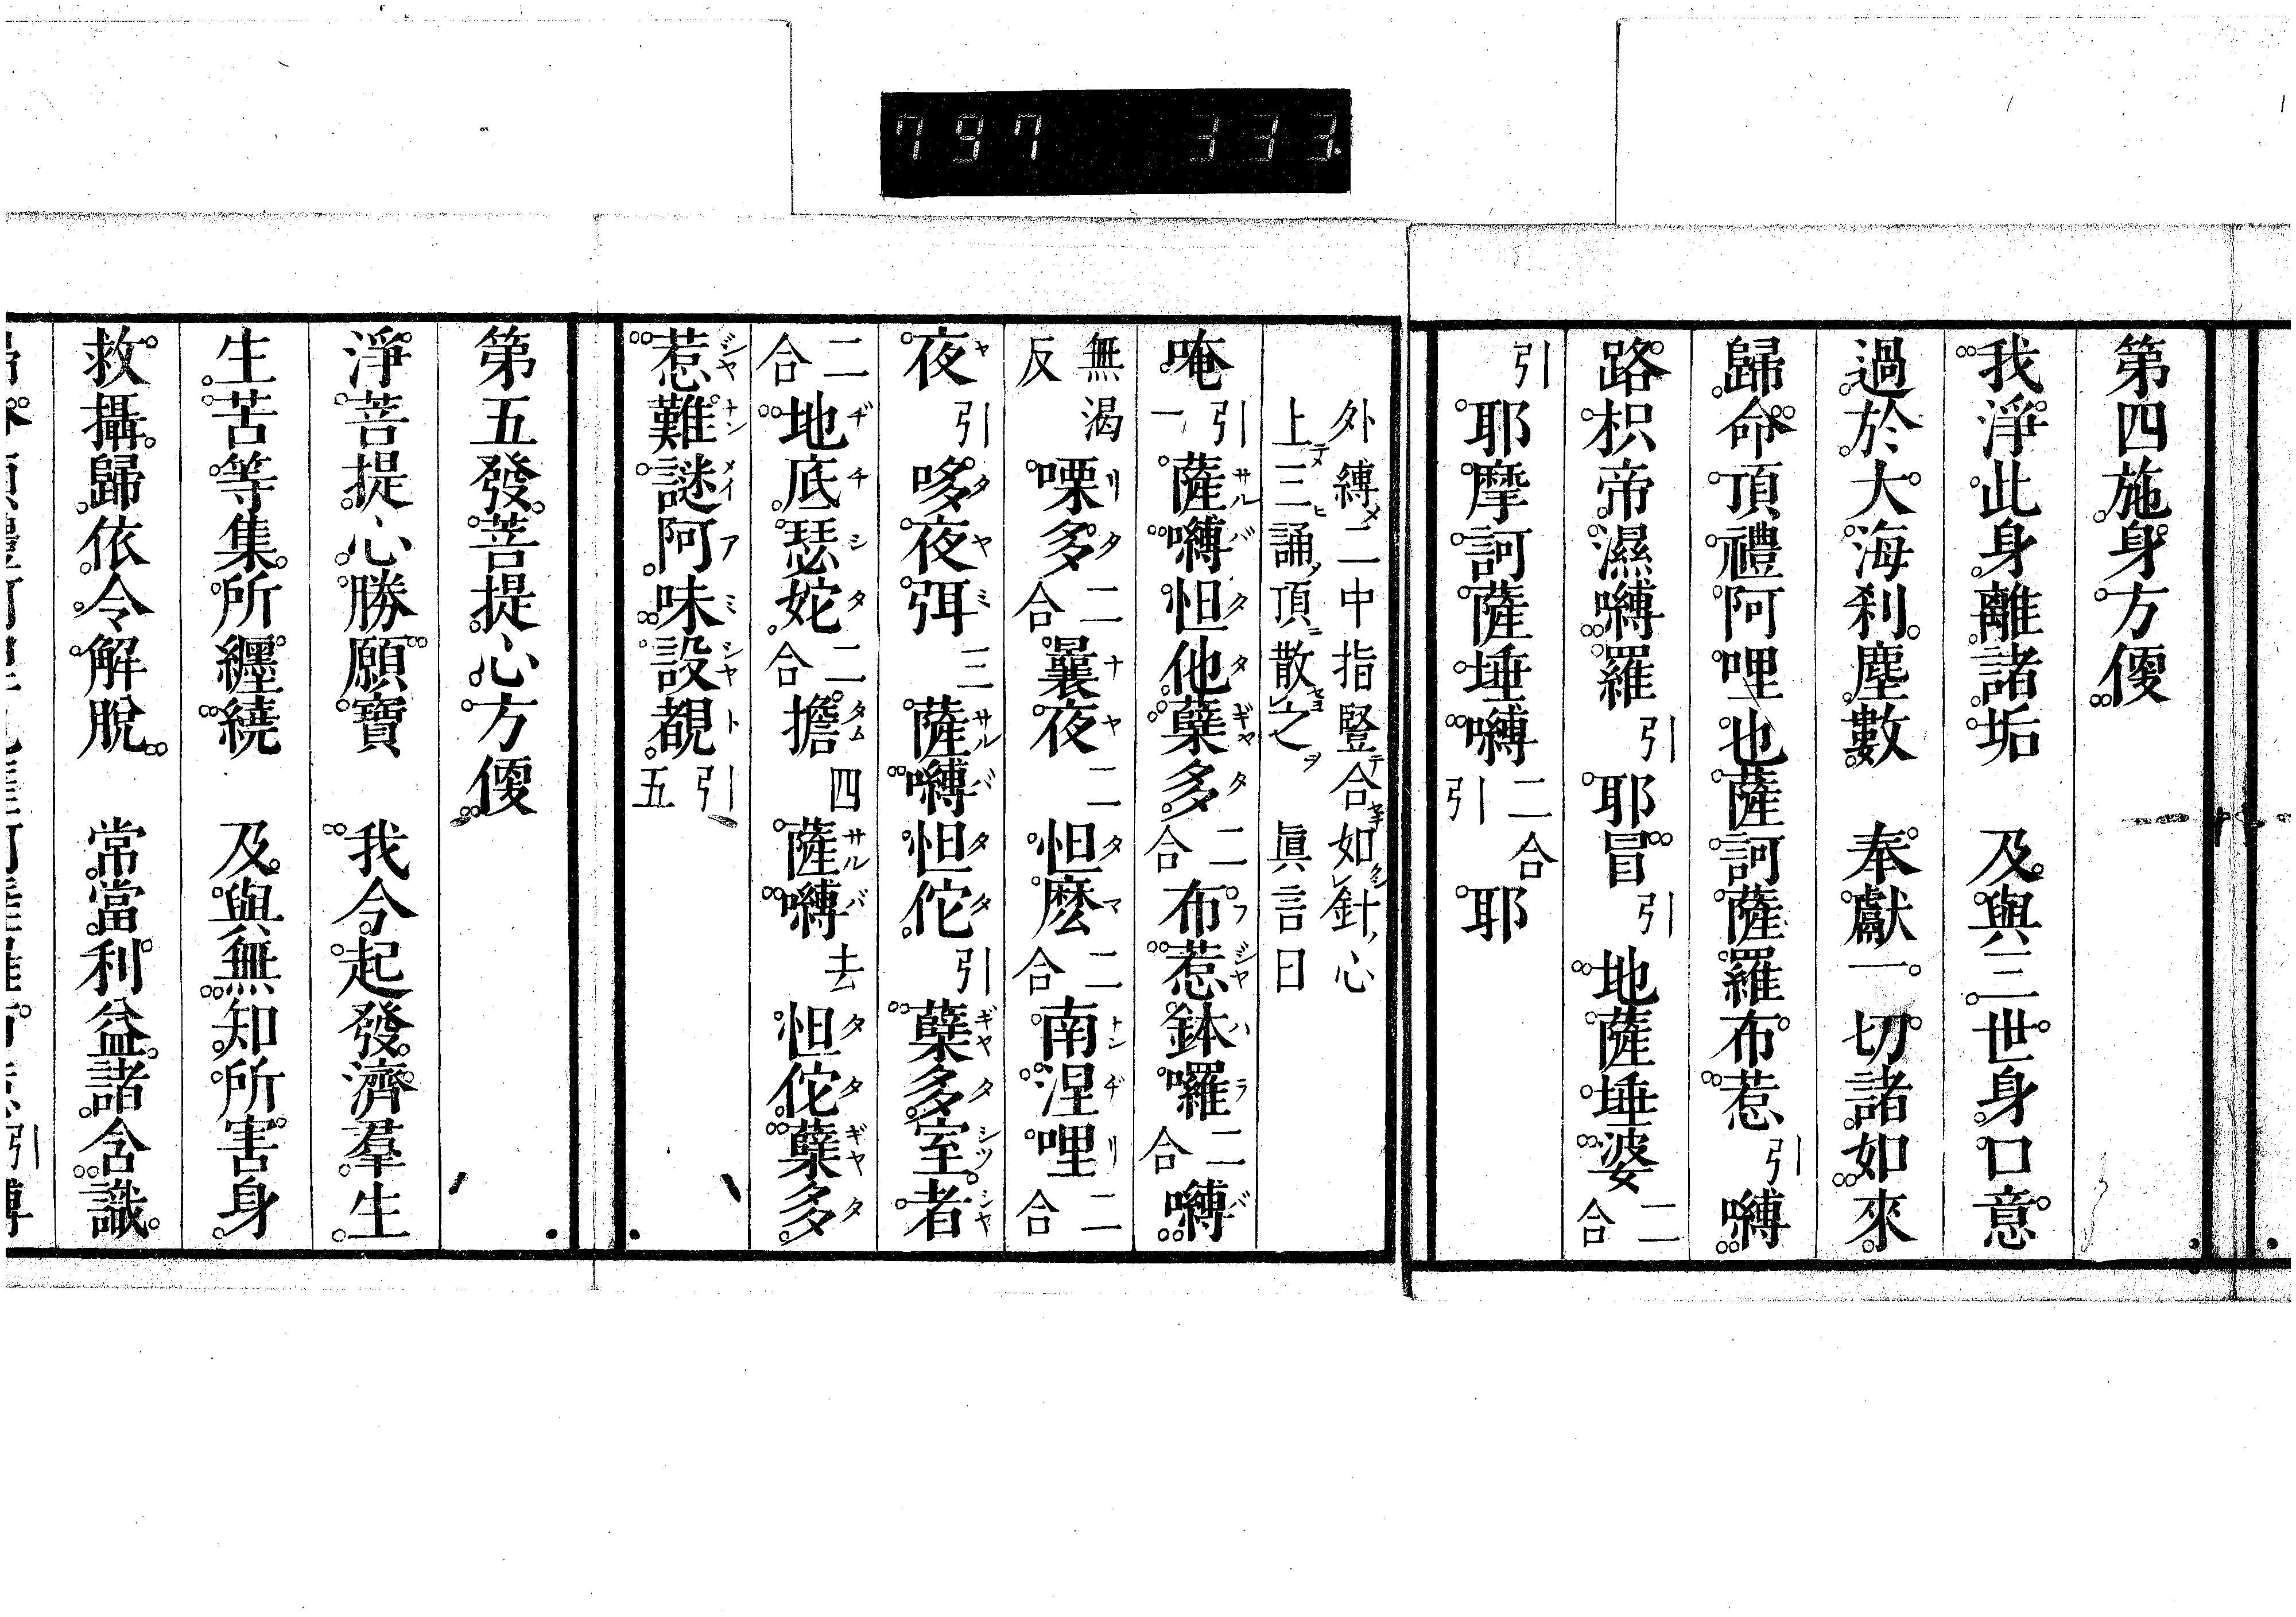 797 333
第四施身方便
我淨此身離諸垢 及與三世身口意
過於大海刹塵數 奉獻一切諸如來
歸命頂禮阿哩也薩訶薩羅布惹引嚩
路枳帝濕嚩羅引耶冒引地薩埵婆二合
引耶摩訶薩埵嚩二合引耶
外縛メ二中指豎テ合セヨ如クシレ針ノ心
上テヌ三ヒ誦ノ頂ニ散セヨレ之ヲ 眞言曰
唵引一薩嚩怛他蘖多二合布惹鉢囉二合嚩
無渴反㗚多二合曩夜二怛麼二合南涅哩二合
夜引哆夜弭三薩嚩怛佗引蘖多室者
二合地底瑟姹二合擔四薩嚩去怛佗蘖多
惹難謎阿味設覩引五
第五發菩提心方便
淨菩提心勝願寶 我今起發濟羣生
生苦等集所纒繞 及與無知所害身
救攝歸依令解脫 常當利益諸含識